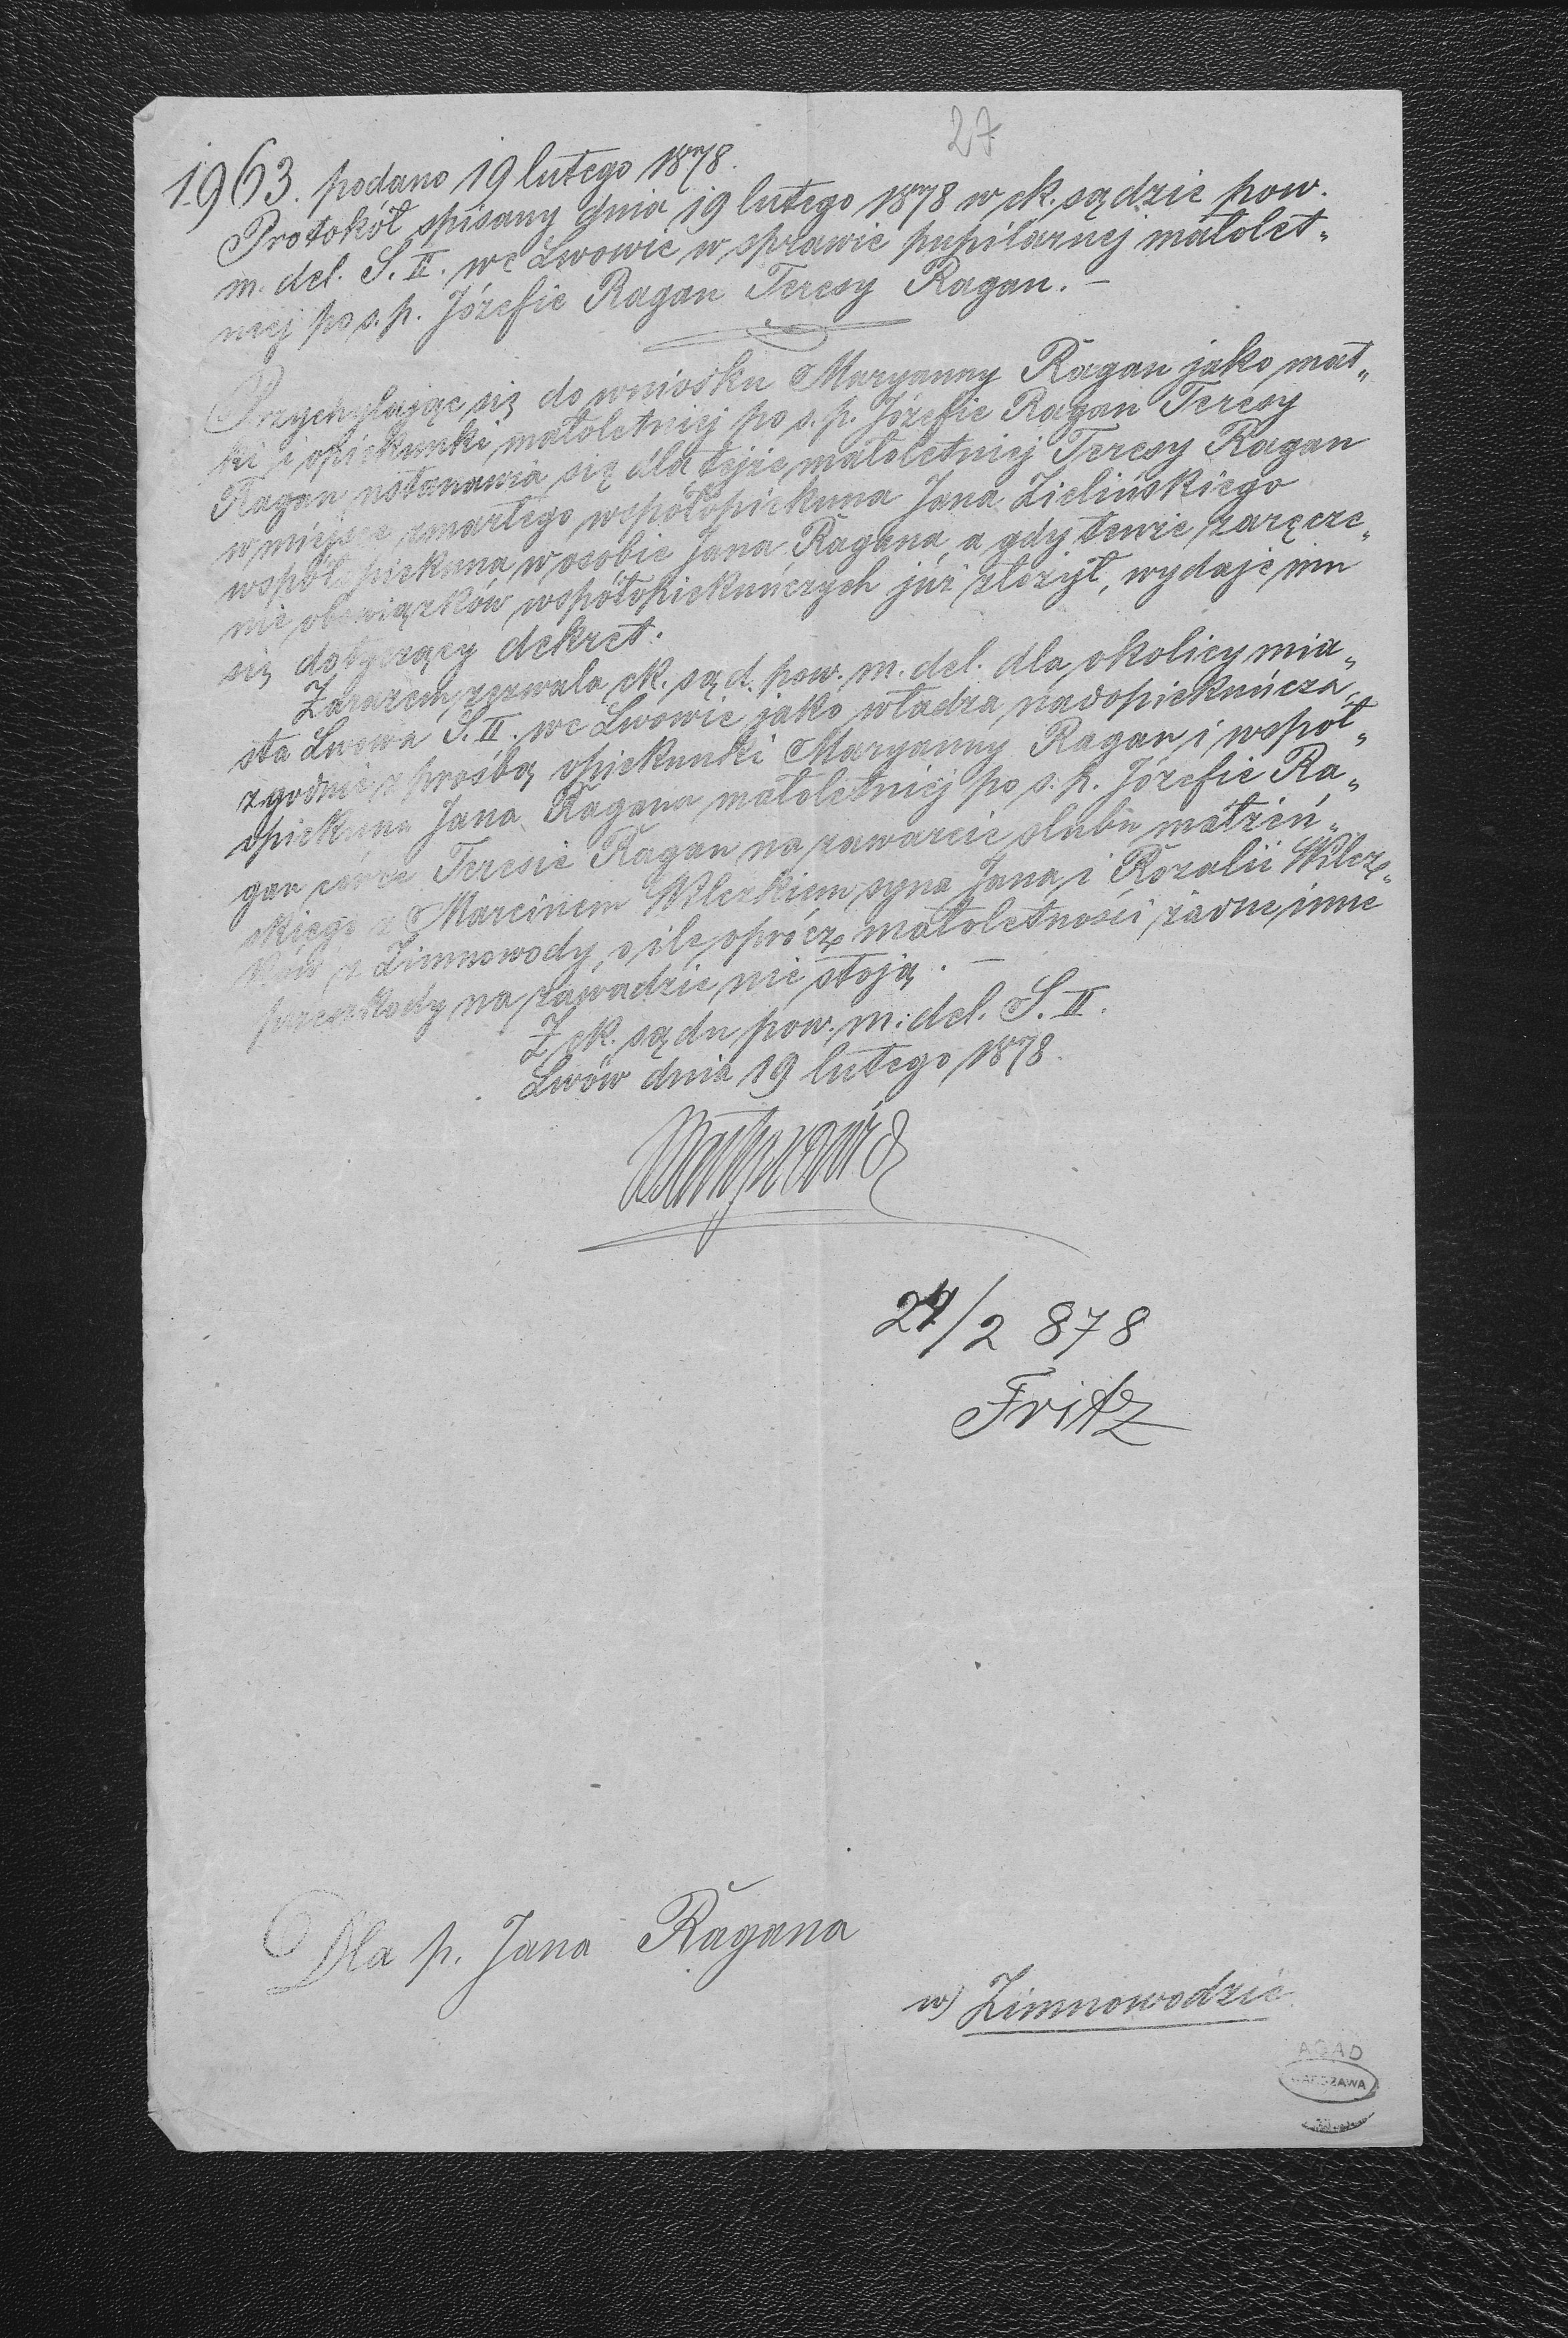 27
1963. podano 19 lutego 1878.
Protokół spisany dnia 19 lutego 1878 w ck. sądzie pow.
m. del. S. II. we Lwowie w sprawie pupilarnej małolet„
niej po s.p. Józefie Ragan Teresy Ragan. –
Przychylając się do wniosku Maryanny Ragan jako mat„
ki i opiekunki małoletniej po s.p. Józefie Ragan Teresy
Ragan, ustanawia się dla tejże małoletniej Teresy Ragan
w miejsce zmarłego współopiekuna Jana Zielińskiego
współopiekuna w osobie Jana Ragana, a gdy tenże zaręcze„
nie obowiązków współopiekuńczych już złożył, wydaje mu
się dotyczący dekret.
Zarazem zezwala ck. sąd. pow. m. del. dla okolicy mia„
sta Lwowa S. II. we Lwowie jako władza nadopiekuńcza
zgodnie z prośbą opiekunki Maryanny Ragan i współ„
opiekuna Jana Ragana małoletniej po s.p. Józefie Ra„
gan córce Teresie Ragan na zawarcie ślubu małżeń„
skiego z Marcinem Wilczkiem syna Jana i Rozalii Wilcz„
ków z Zimnowody, o ile oprócz małoletności żadne inne
przeszkody na zawadzie nie stoją. –
Z ck. sądu pow. m. del. S. II.
Lwów dnia 19 lutego 1878.
/2 878
Fritz
Dla p. Jana Ragana
w) Zimnowodzie
AGAD
WARSZAWA